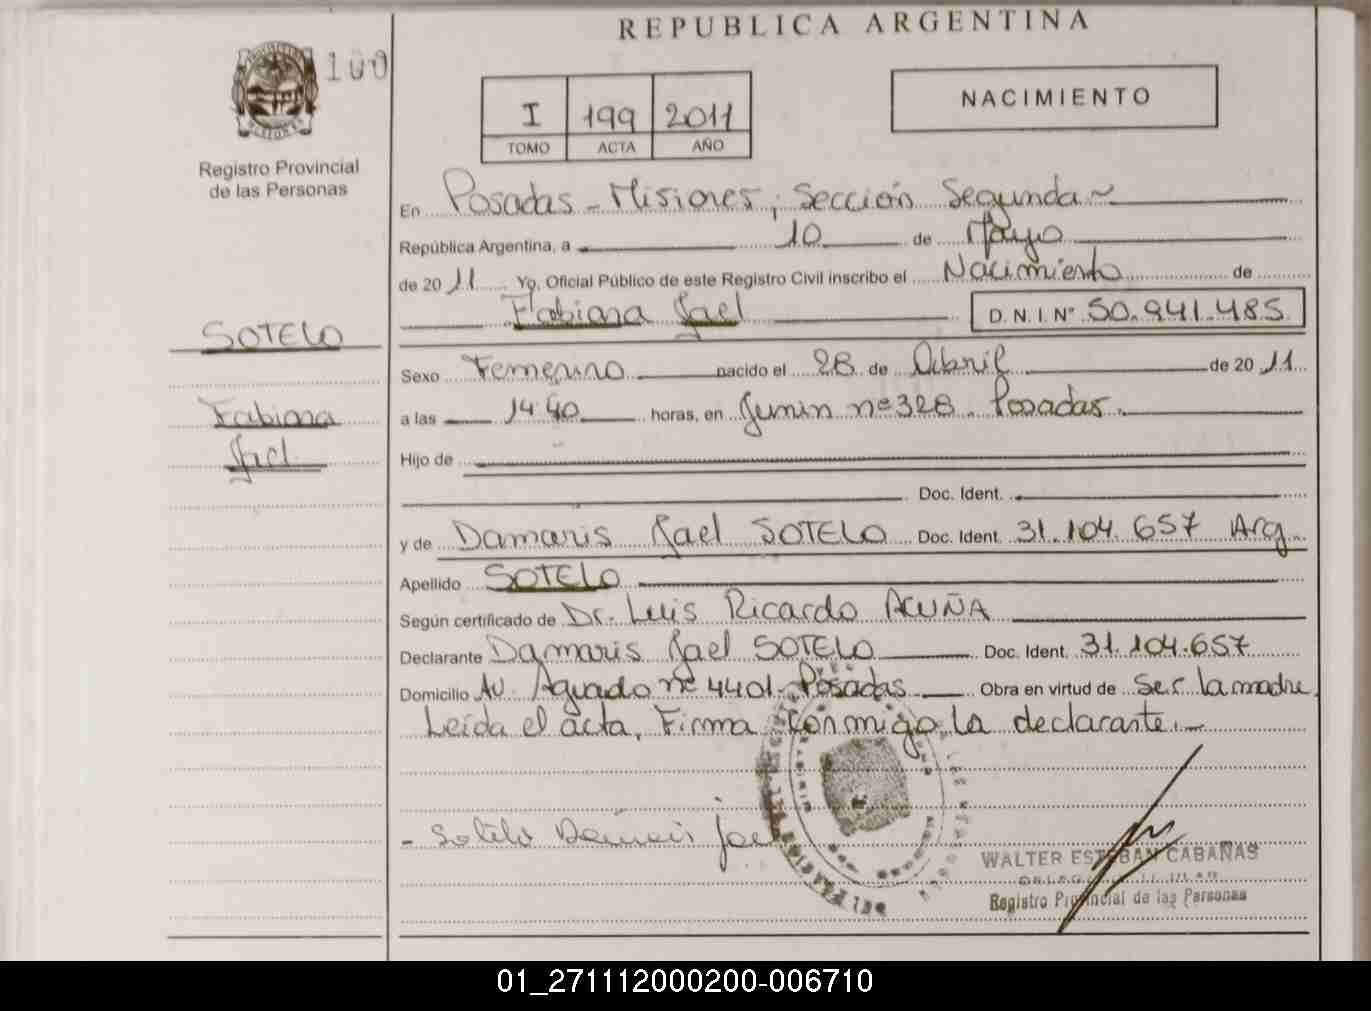 REPUBLICA ARGENTINA
100
I 199 2011
TOMO ACTA AÑO
NACIMIENTO
Registro Provincial
de las Personas
En Posadas - Misiones, Sección Segunda
República Argentina, a 10 de Mayo
de 2011 Yo, Oficial Público de este Registro Civil inscribo el Nacimiento de
Fabiana Jael D.N.I. Nº 50.941.485
SOTELO
Fabiana
Jael
Sexo Femenino nacido el 28 de Abril de 2011
a las 14:40 horas, en Junin nº 328. Posadas.
Hijo de
Doc. Ident.
y de Damaris Jael SOTELO Doc. Ident. 31.104.657 Arg.
Apellido SOTELO
Según certificado de Dr. Luis Ricardo ACUÑA
Declarante Damaris Jael SOTELO Doc. Ident. 31.104.657
Domicilio Av. Aguado nº 4401 - Posadas Obra en virtud de Ser la madre
Leída el acta, Firma conmigo, la declarante.-
- Sotelo Damaris Jael
WALTER ESTEBAN CABAÑAS
Registro Provincial de las Personas
01_271112000200-006710